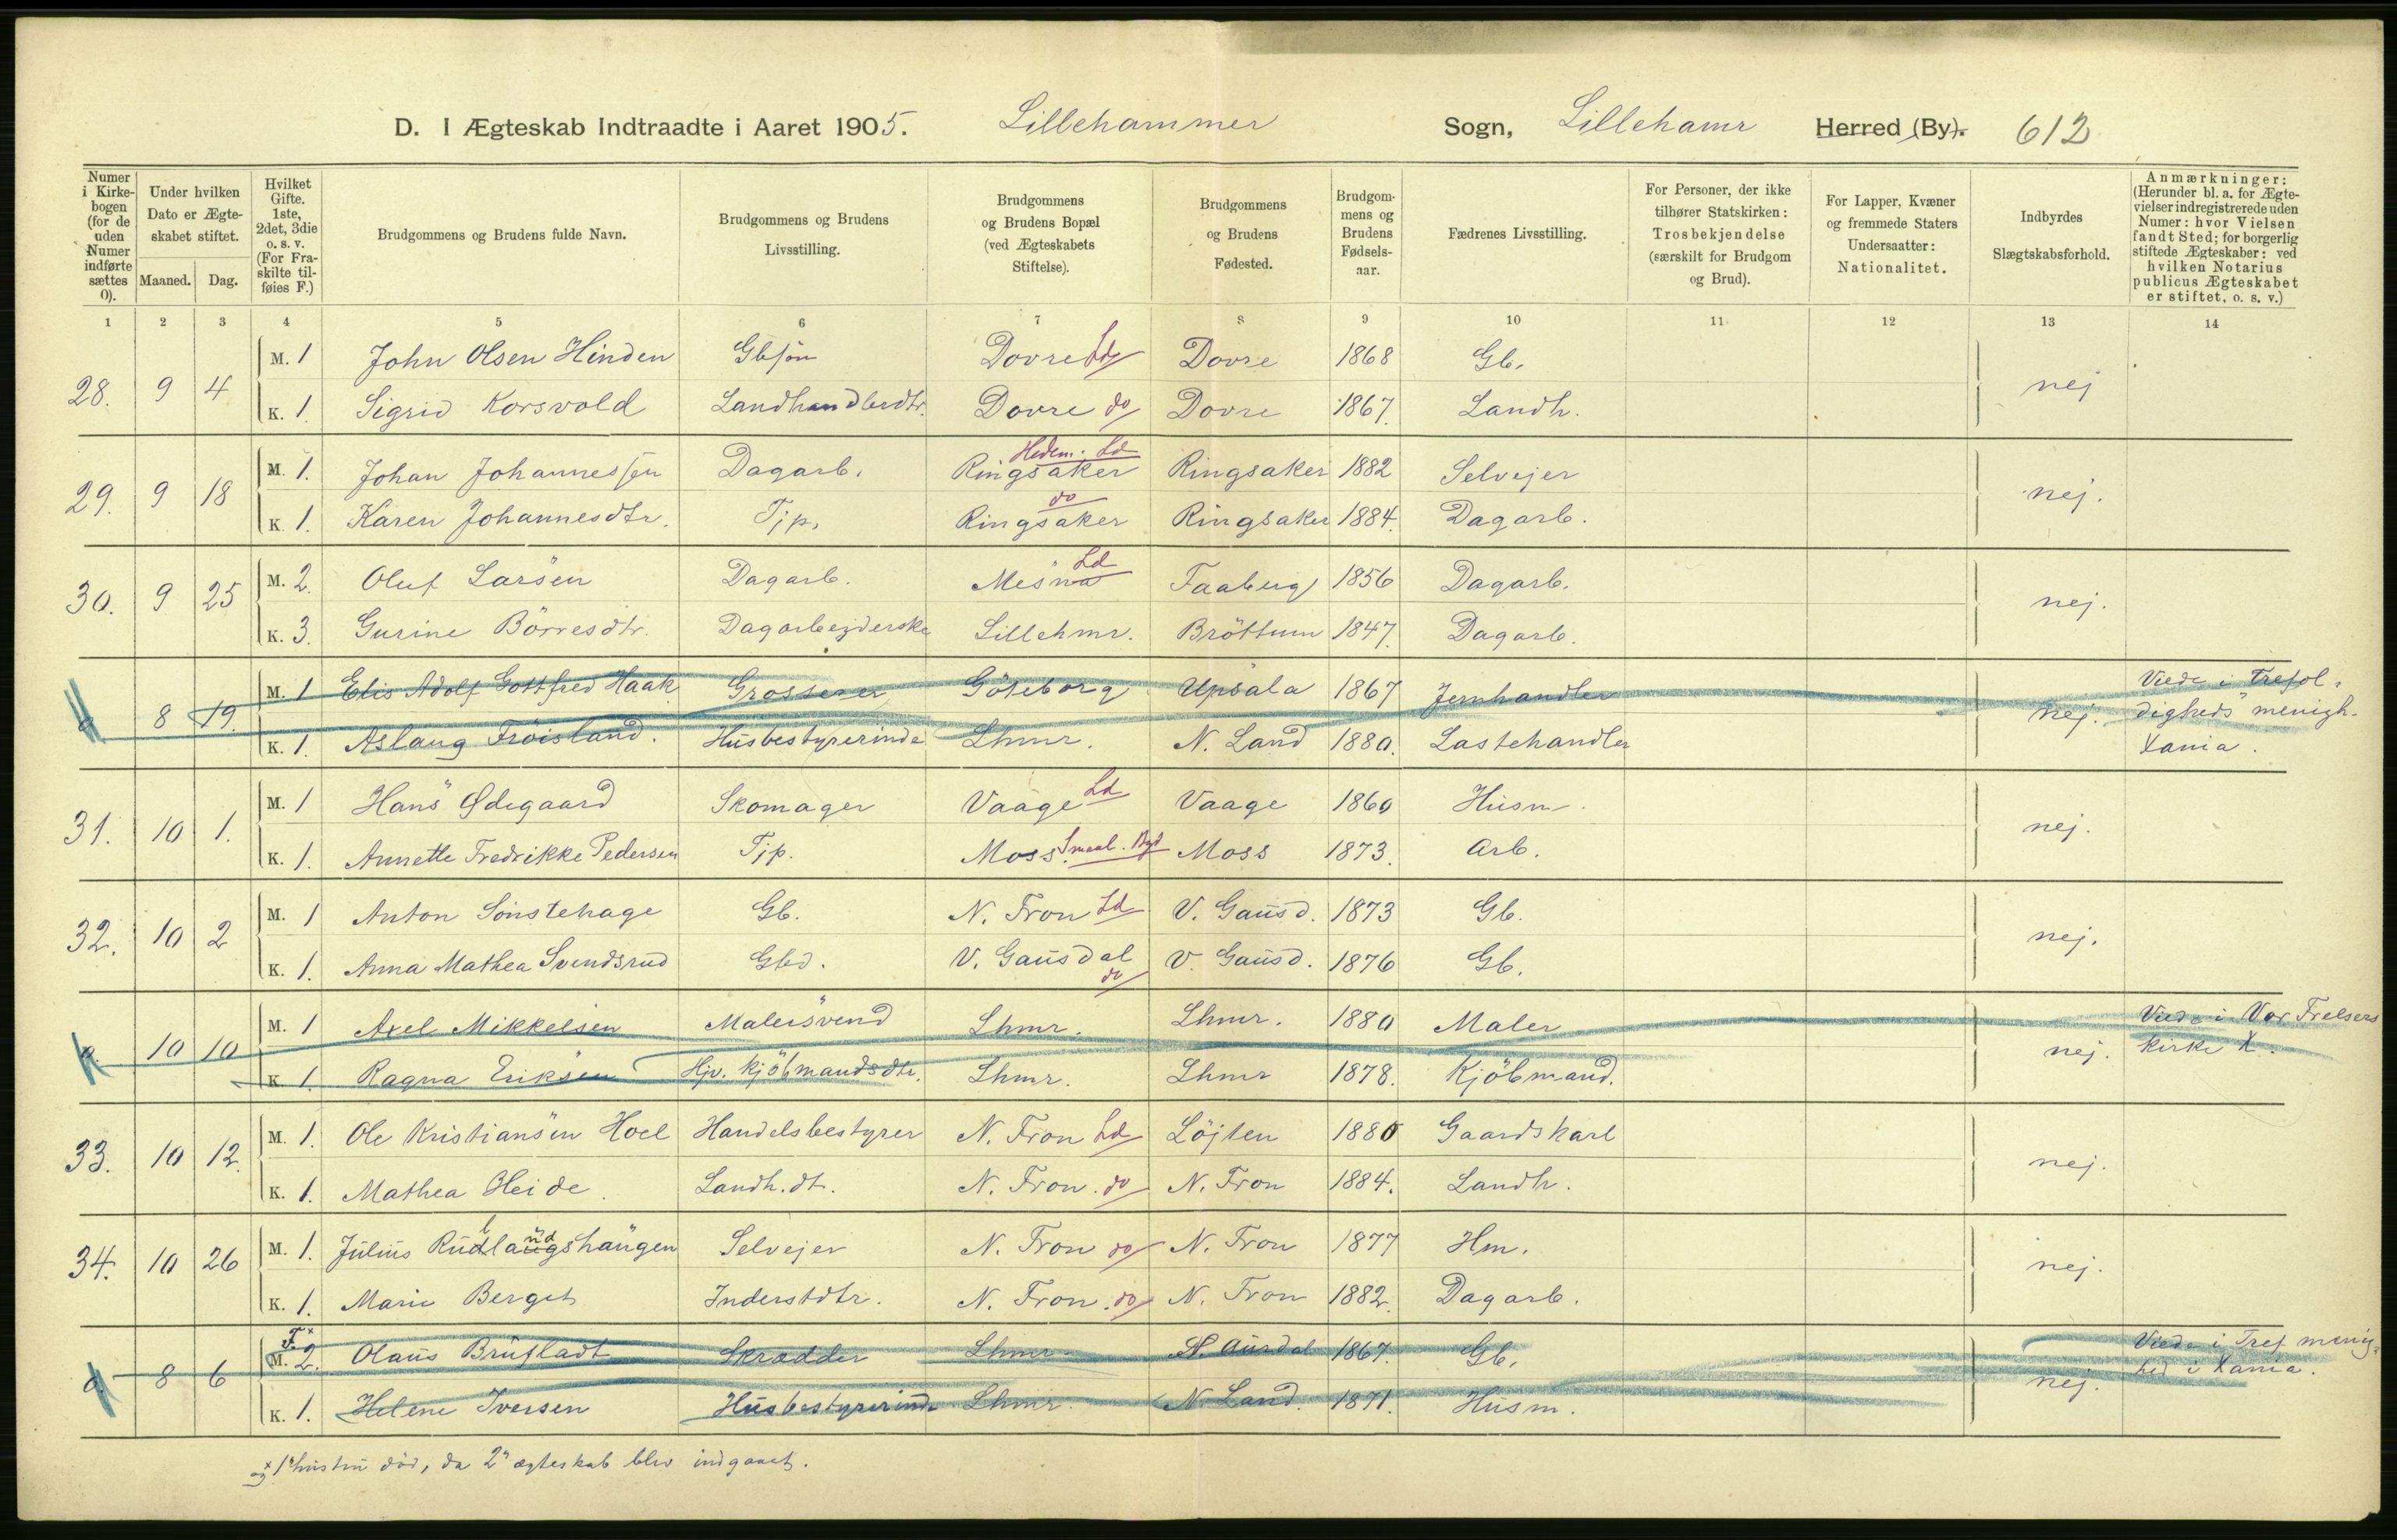 D. I Ægteskab Indtraadte i Aaret 1905. Lillehammer Sogn, Lillehamr Herred (By). 612
Numer i Kirkebogen (for de uden Numer indførte sættes 0). Under hvilken Dato er Ægteskabet stiftet. Maaned. Dag. Hvilket Gifte. 1ste, 2det, 3die o. s. v. (For Fraskilte tilføies F.) Brudgommens og Brudens fulde Navn. Brudgommens og Brudens Livsstilling. Brudgommens og Brudens Bopæl (ved Ægteskabets Stiftelse). Brudgommens og Brudens Fødested. Brudgommens og Brudens Fødselsaar. Fædrenes Livsstilling. For Personer, der ikke tilhører Statskirken: Trosbekjendelse (særskilt for Brudgom og Brud). For Lapper, Kvæner og fremmede Staters Undersaatter: Nationalitet. Indbyrdes Slægtskabsforhold. Anmærkninger: (Herunder bl. a. for Ægtevielser indregistrerede uden Numer: hvor Vielsen fandt Sted; for borgerlig stiftede Ægteskaber: ved hvilken Notarius publicus Ægteskabet er stiftet, o. s. v.)
1 2 3 4 5 6 7 8 9 10 11 12 13 14
28. 9 4 M. 1 John Olsen Hinden Gbsøn Dovre Ld Dovre 1868 Gb. nej
K. 1 Sigrid Korsvold Landhandlerdtr. Dovre do Dovre 1867. Landh.
29. 9 18 M. 1. Johan Johannessen Dagarb. Ringsaker Hedem. Ld Ringsaker 1882 Selvejer nej.
K. 1. Karen Johannesdtr. Tjp. Ringsaker do Ringsaker 1884. Dagarb.
30. 9 25 M. 2. Oluf Larsen Dagarb. Mesna Ld Faaberg 1856 Dagarb. nej.
K. 3. Gurine Börresdtr. Dagarbejderske Lillehmr. Bröttum 1847. Dagarb.
0 8 19. M. 1 Elis Adolf Gottfred Haak Grosserer Göteborg Upsala 1867 Jernhandler nej. Viede i Trefoldigheds menigh. Xania.
K. 1. Aslaug Fröisland. Husbestyrerinde Lhmr. N. Land 1880. Lastehandler
31. 10 1. M. 1 Hans Ødegaard Skomager Vaage Ld Vaage 1860 Husm. nej.
K. 1. Annette Fredrikke Pedersen Tjp. Moss. Smaal. Moss 1873. Arb.
32. 10 2 M. 1 Anton Sönstehage Gb. N. Fron Ld V. Gausd. 1873 Gb. nej.
K. 1. Anna Mathea Svendsrud Gbd. V. Gausdal do V. Gausd. 1876 Gb.
0. 10 10 M. 1 Axel Mikkelsen Malersvend Lhmr. Lhmr. 1880 Maler nej. Viede i Vor Frelsers kirke X.
K. 1. Ragna Eriksen Hjv. kjöbmandsdtr. Lhmr. Lhmr 1878. Kjöbmand.
33. 10 12. M. 1. Ole Kristiansen Hoel Handelsbestyrer N. Fron Ld Löjten 1880 Gaardskarl nej.
K. 1. Mathea Heide. Landh. dt. N. Fron. do N. Fron 1884. Landh.
34. 10 26 M. 1. Julius Rudlandshaugen Selvejer N. Fron do N. Fron 1877 Hm. nej.
K. 1. Marie Berget Inderstdtr. N. Fron. do N. Fron 1882. Dagarb.
0. 8 6 F.x M. 2. Olaus Brufladt Skrædder Lhmr. Aurdal 1867. Gb. nej. Viede i Tref menighed i Xania.
K. 1. Helene Iversen Husbestyrerinde Lhmr. N. Land. 1871. Husm.
x 1e hustru död, da 2t ægteskab blev indgaaet.